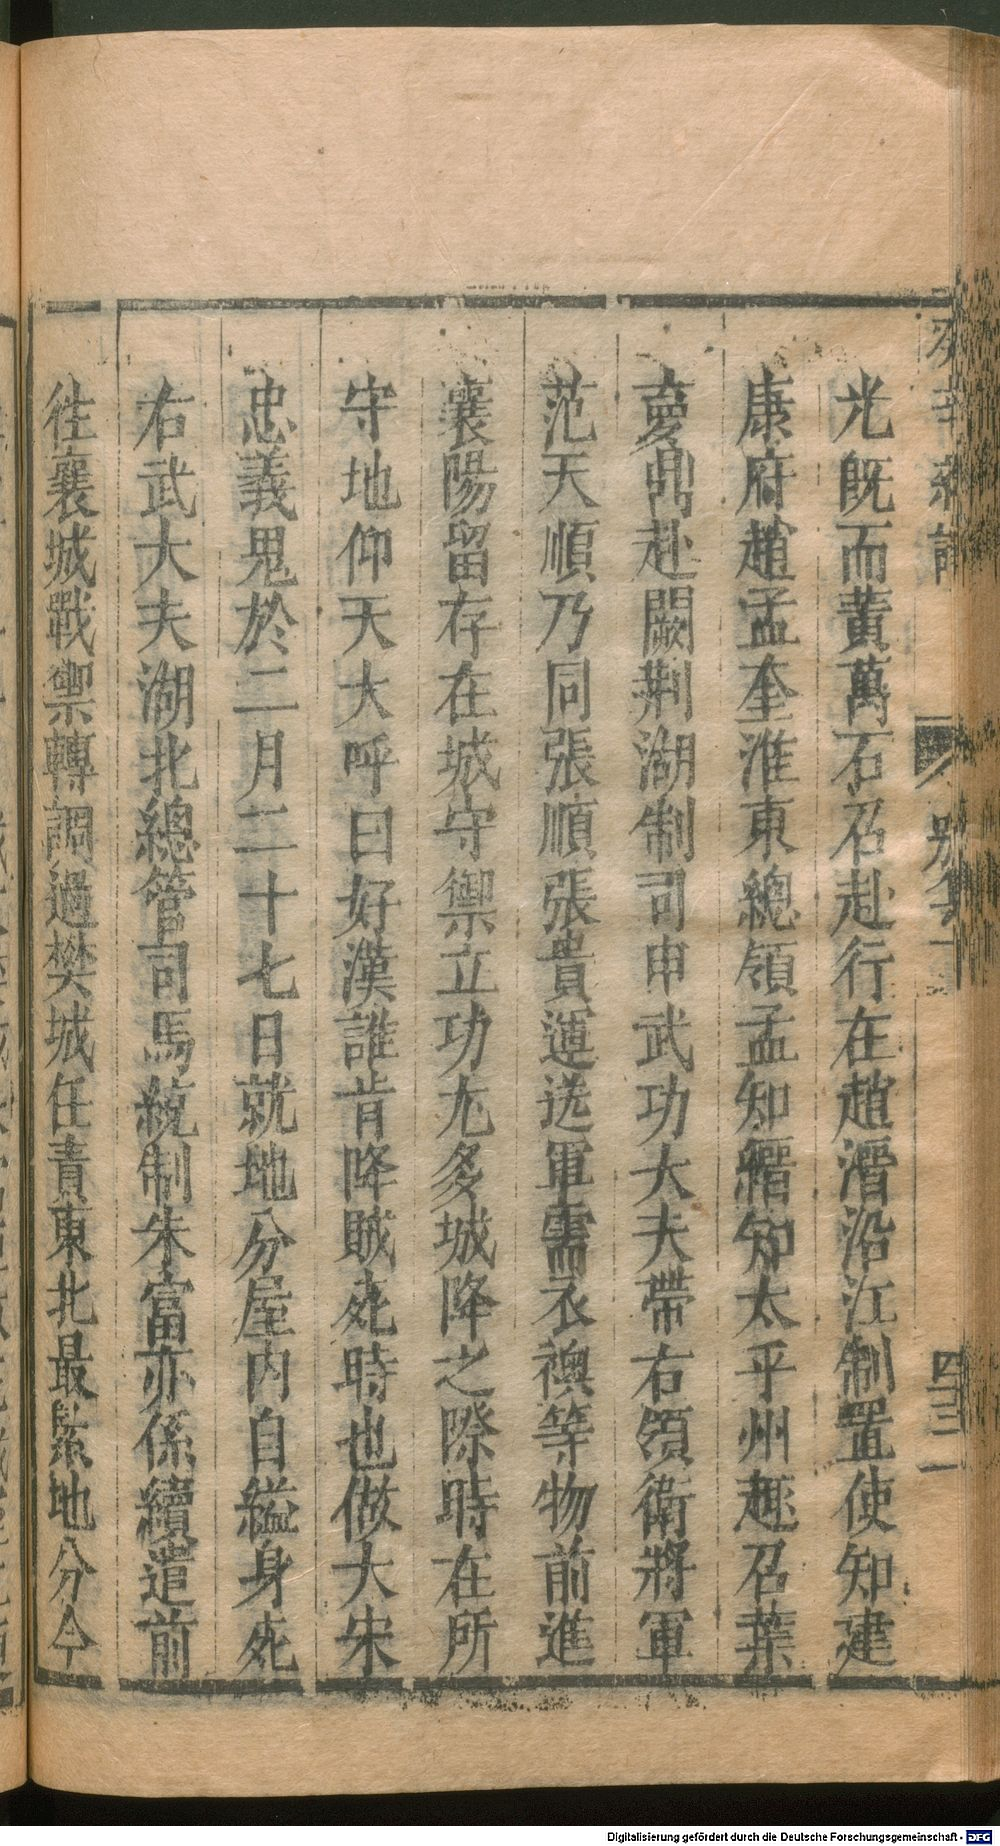 光既而黃萬石召赴行在趙溍沿江制置使知建
康府趙孟奎淮東總領孟知縉知太平州趣召葉
夢鼎赴闕荆湖制司申武功大夫帶右領衛將軍
范天順乃同張順張貴運送軍需衣襖等物前進
襄陽留存在城守禦立功尤多城降之際時在所
守地仰天大呼曰好漢誰肯降賊死時也做大宋
忠義鬼於二月二十七日就地分屋内自縊身死
右武大夫湖北總管司馬統制朱富亦係續遣前
徃襄城戰禦轉調過樊城任責東北最緊地分今
别集
四
Digitalisierung gefördert durch die Deutsche Forschungsgemeinschaft - DFG